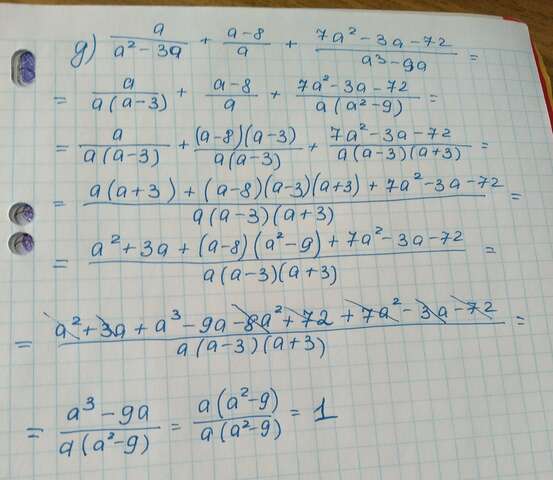 g) a/(a² - 3a) + (a-8)/a + (7a² - 3a - 72)/(a³ - 9a) =
= a/(a(a-3)) + (a-8)/a + (7a² - 3a - 72)/(a(a²-9)) =
= a/(a(a-3)) + ((a-8)(a-3))/(a(a-3)) + (7a² - 3a - 72)/(a(a-3)(a+3)) =
= (a(a+3) + (a-8)(a-3)(a+3) + 7a² - 3a - 72)/(a(a-3)(a+3)) =
= (a² + 3a + (a-8)(a²-9) + 7a² - 3a - 72)/(a(a-3)(a+3)) =
= (a² + 3a + a³ - 9a - 8a² + 72 + 7a² - 3a - 72)/(a(a-3)(a+3)) =
= (a³ - 9a)/(a(a²-9)) = (a(a²-9))/(a(a²-9)) = 1